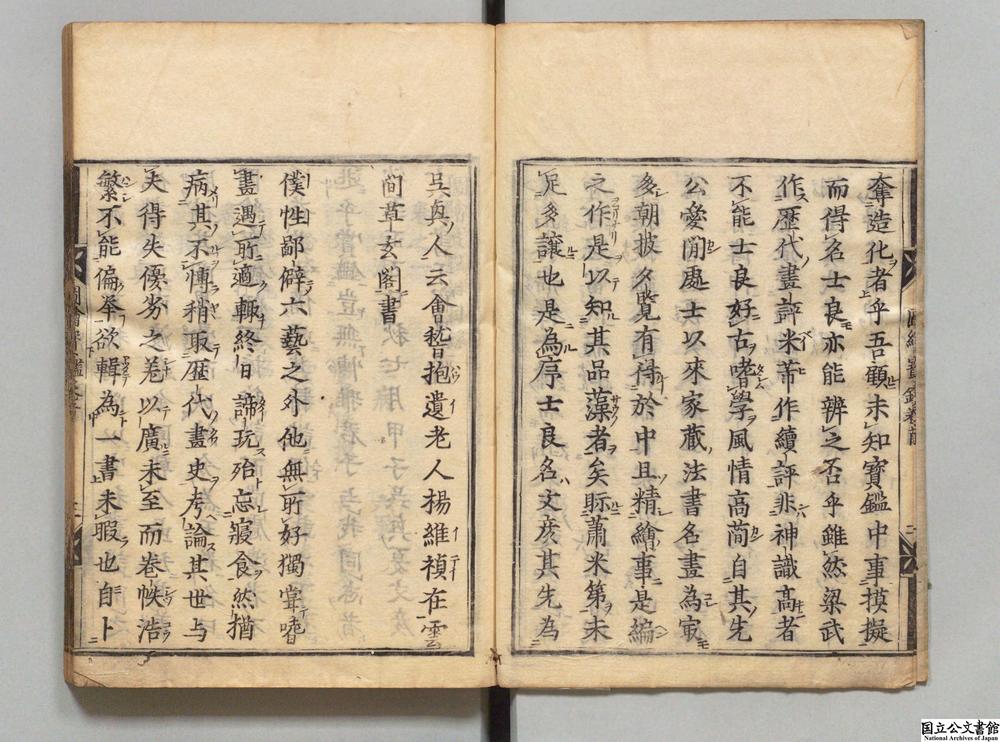 奪造化者乎吾顧未知寶鑑中事摸擬
而得名士良亦能辨之否乎雖然梁武
作歴代畫評米芾作續評非神識高者
不能士良好古嗜學風情高簡自其先
公愛閒處士以來家藏法書名畫為冣
多朝披夕覧有得於中且精繪事是編
之作是以知其品藻者矣眎蕭米第未
足多讓也是為序士良名文彦其先為
吳興人云會稽抱遺老人楊維禎在雲
間草玄閣書
僕性鄙僻六藝之外他無所好獨嘗嗜
畫遇所適輙終日諦玩殆忘寢食然猶
病其不傳稍取歴代畫史考論其世与
夫得失優劣之卷以廣未至而卷帙浩
繁不能偏举欲輯為一書未暇也自卜
國立公文書館
National Archives of Japan